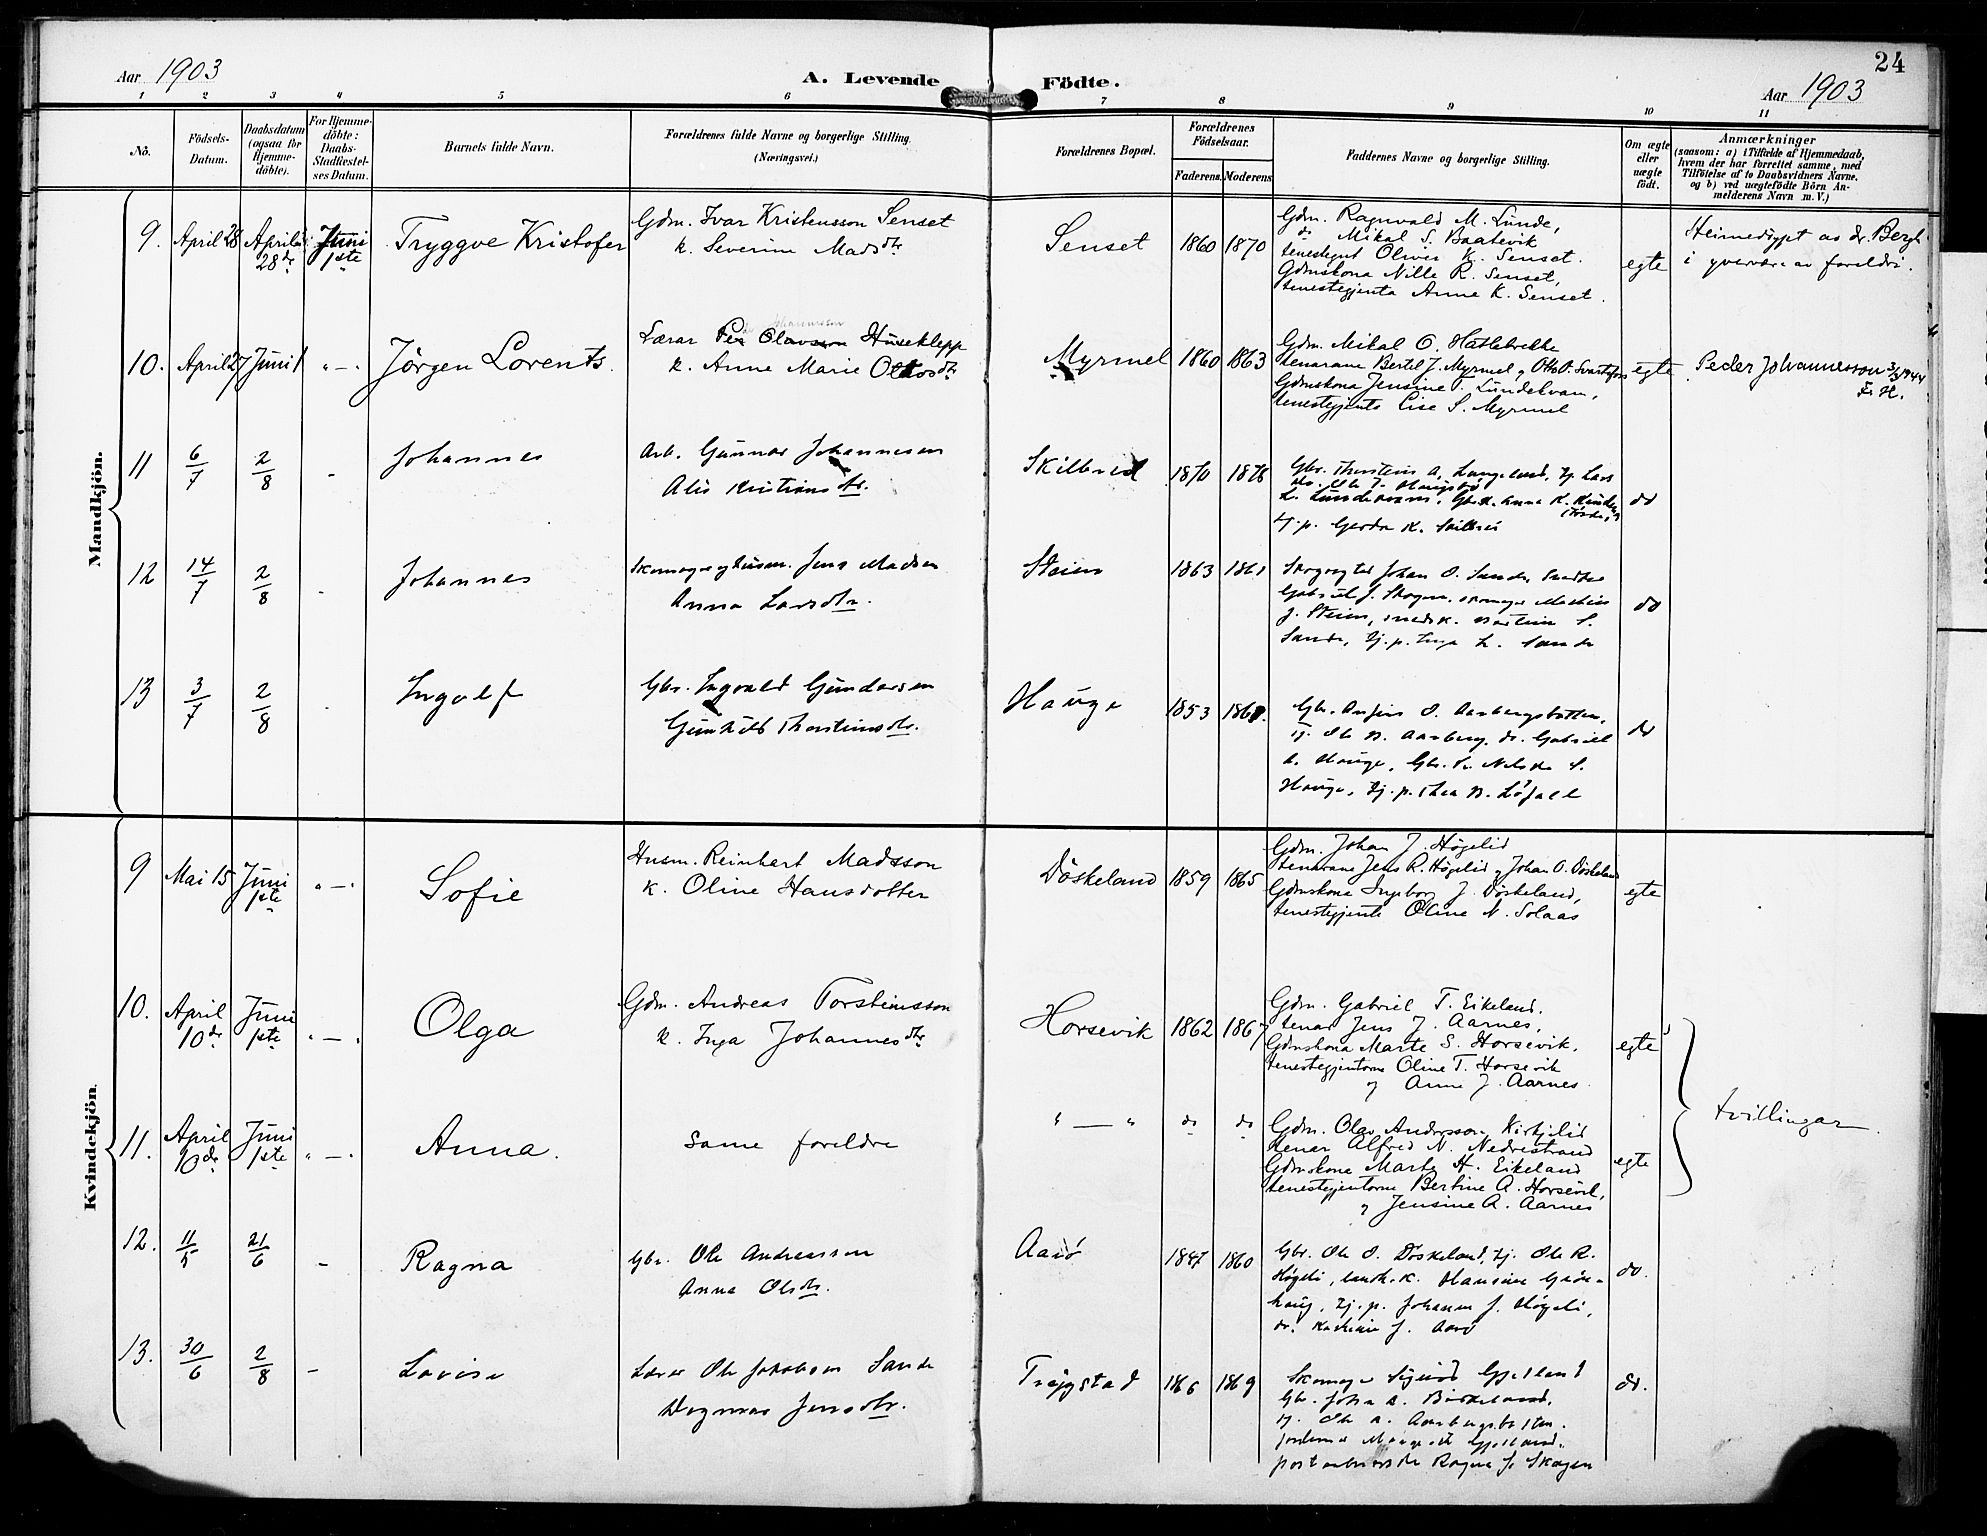 24
Aar 1903
A. Levende Födte.
Aar 1903
1 2 3 4 5 6 7 8 9 10 11
No.
Födsels-
Datum.
Daabsdatum
(ogsaa for
Hjemme-
döbte).
For Hjemme-
döbte:
Daabs-
Stadfæstel-
ses Datum.
Barnets fulde Navn.
Forældrenes fulde Navne og borgerlige Stilling
(Næringsvei.)
Forældrenes Bopæl.
Forældrenes
Födselsaar.
Faderens. Moderens
Faddernes Navne og borgerlige Stilling.
Om ægte
eller
uægte
födt.
Anmærkninger
(saasom: a) i Tilfælde af Hjemmedaab,
hvem der har forrettet samme, med
Tilföielse af to Daabsvidners Navne,
og b) ved uægtefödte Börn An-
melderens Navn m. V.)
Mandkjön.
9. April 28 April 28de Juni 1ste
Tryggve Kristofer
Gdm. Ivar Kristensson Senset
k. Severine Madsdtr
Senset 1860 1870
Gdm. Ragnvald M. Lunde,
do Mikal S. Baatevik
tenestegut Oliver K. Senset.
Gdmskona Nille R. Senset,
tenestegjenta Anne K. Senset.
egte
Heimedøypt av dr. Bergh
i yverværa av foreldri.
10. April 27 Juni 1 "—"
Jörgen Lorents.
Johannesson
Lærar Per Olavson Huseklepp
k. Anne Marie Olavsdtr
Myrmel 1860 1863
Gdm. Mikal O. Hatlebrekke
tenarane Bertel J. Myrmel og Otto O. Svartefoss
Gdmskona Jensine T. Lundekvam,
tenestegjenta Lise S. Myrmel
egte
Peder Johannesson 3/3 1944
F. H.
11 6/7 2/8 -
Johannes
Arb. Gunnar Johannesen
Alis Kristiansdtr.
Skilbred 1870 1878
Gbr. Thorstein A. Langeland, tj. Lars
L. Lundekvam, Gbrk. Anna K.
tj. p. Gerda K. Skilbrei
do
12 14/7 2/8 -
Johannes
Skomager og husm. Jens Madsen
Anna Larsdtr.
Steien 1863 1861
Skogvogter Johan O. Sande,
Gabriel J. Skogen, skomager Mathias
J. Steien, snedk. Martin S.
Sande, tj. p. Inga L. Sande
do
13 3/7 2/8
Ingolf
Gbr. Ingvald Gundersen
Gunhild Thorsteinsdtr.
Hauge 1853 1861.
Gbr. Anfin O. Aarbergsbotten,
tj. Ole N. Aarberg, do. Gabriel
A. Hauge, Gbr. k. Nilsine S.
Hauge, tj. p. Thea N. Löfall
do
Kvindekjön.
9 Mai 15 Juni 1ste "—"
Sofie
Husm. Reinhart Madsson
k. Oline Hansdotter
Döskeland 1859 1865
Gdm. Johan J. Høgelid
tenarane Jens R. Høgelid og Johan O. Döskeland
Gdmskona Ingeborg J. Döskeland,
tenestegjenta Oline N. Solaas
egte
10. April 10de Juni 1ste "—"
Olga
Gdm. Andreas Torsteinsson
k. Inga Johannesdtr
Horsevik 1862 1867
Gdm. Gabriel T. Eikeland.
tenar Jens J. Aarnes,
Gdmskona Marte S. Horsevik.
tenestegjentorne Oline T. Horsevik
og Anne J. Aarnes.
egte
tvillingar
11. April 10de Juni 1ste "—"
Anna.
Same foreldre
"—" do do
Gdm. Olav Andersson Kirkjelid
tenar Alfred N. Nedrestrand
Gdmskona Marte H. Eikeland
tenestegjentorne Bertine A. Horsevik,
og Jensine A. Aarnes
egte
12. 11/5 21/6 -
Ragna
Gbr. Ole Andreassen
Anna Olsdtr.
Aarö 1847 1860
Gbr. Ole O. Döskeland, tj. Ole R.
Högeli, landh. k. Hansine Grön-
haug, tj. p. Johanna J. Högeli,
do. Katrine J. Aarö
do.
13. 30/6 2/8 -
Lovise
Lærer Ole Jakobsen Sande
Dagmar Jensdtr.
Trygstad 186 1869
Skomager Sigurd Gjelland
Gbr. Johan A. Birkeland,
tj. Ole A. Aarbergsbotten.
jordemor Margrete Gjelland,
postaabnerske Ragna J. Skogen
do.